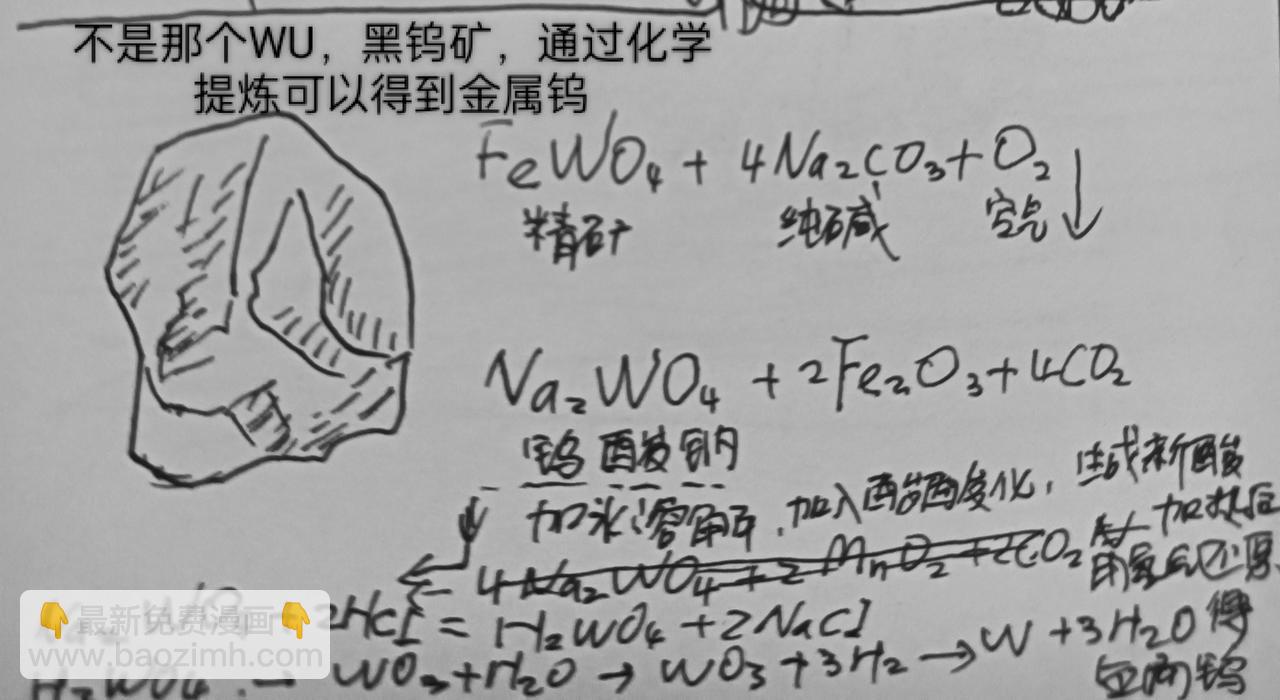 不是那个WU，黑钨矿，通过化学
提炼可以得到金属钨
FeWO₄ + 4Na₂CO₃ + O₂ ↓
精矿 纯碱 空气
Na₂WO₄ + 2Fe₂O₃ + 4CO₂
钨酸钠
加水溶解，加入酸酸化，生成新酸
加热后
4Na₂WO₄ + 2MnO₂ + 2CO₂
用氢气还原
+ 2HCl = H₂WO₄ + 2NaCl
得
H₂WO₄ → WO₃ + H₂O → WO₃ + 3H₂ → W + 3H₂O
钨
👇最新免费漫画👇
www.baozimh.com